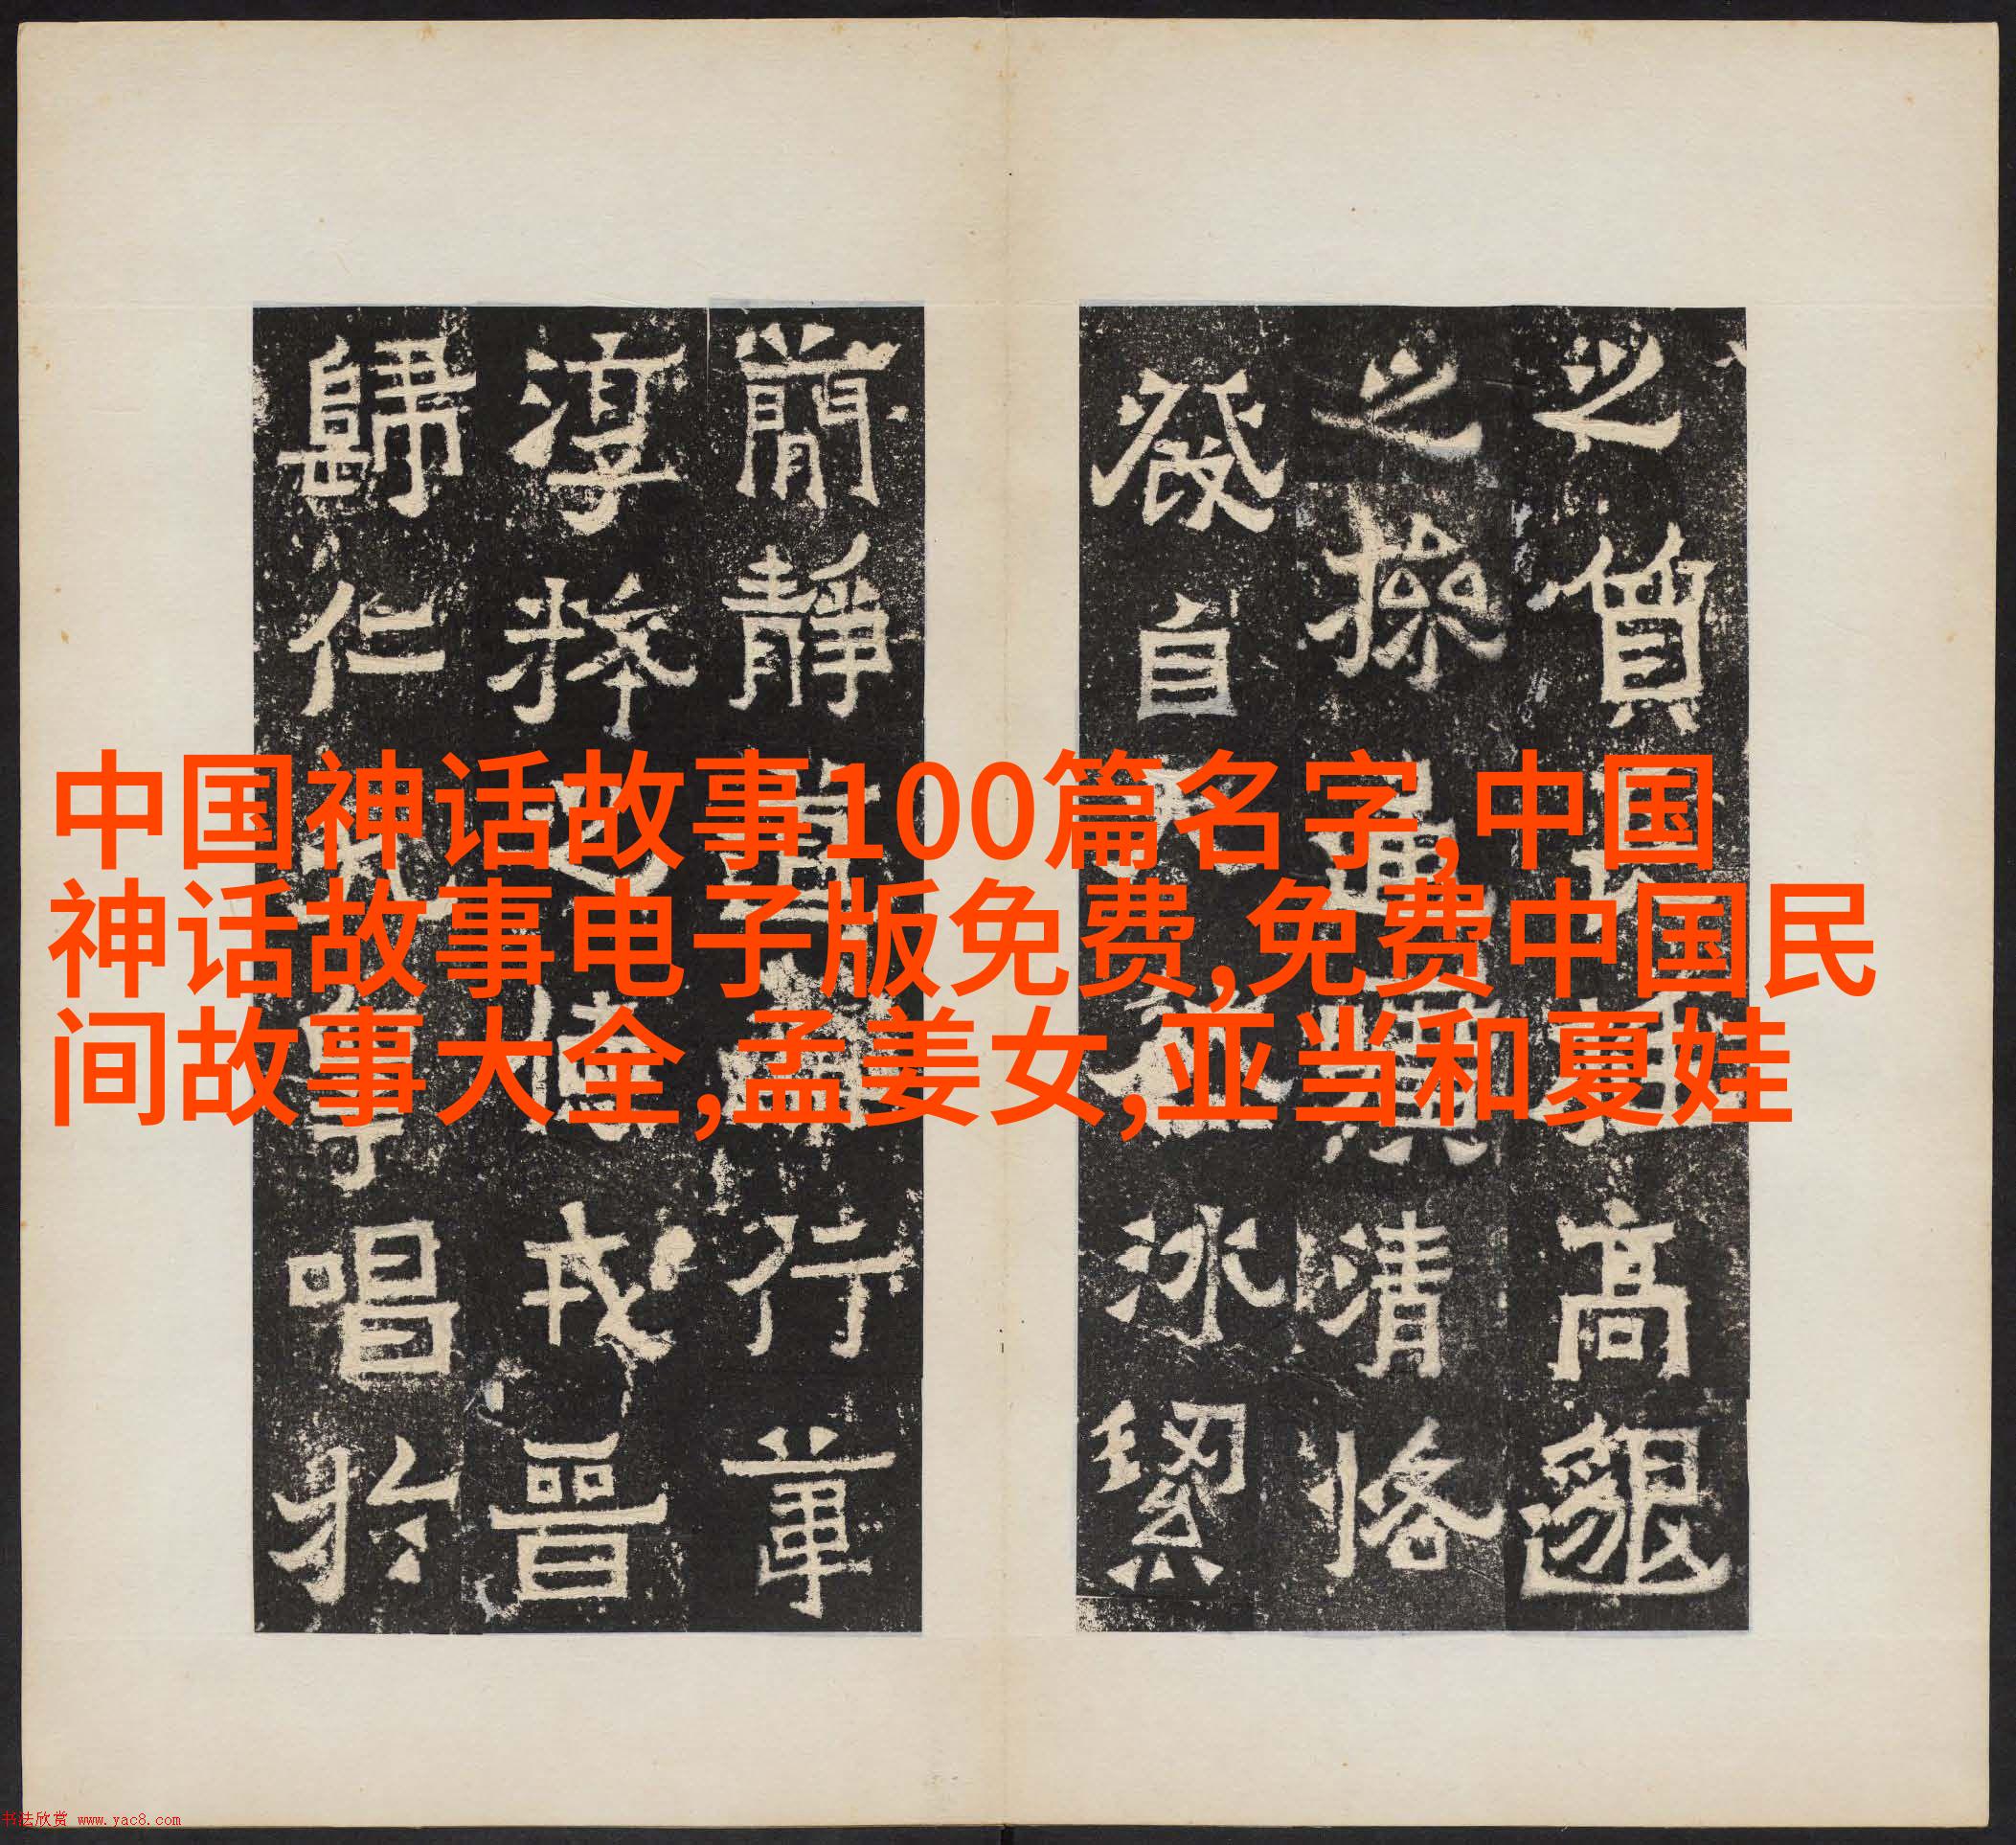 中国神话故事100篇名字,中国
神话故事电子版免费,免费中国民
间故事大全,孟姜女,亚当和夏娃
之質高邈
之操通清恪
發自冰絜
簡靜行
淳戎晉
歸仁唱於
书法欣赏 www.yac8.com